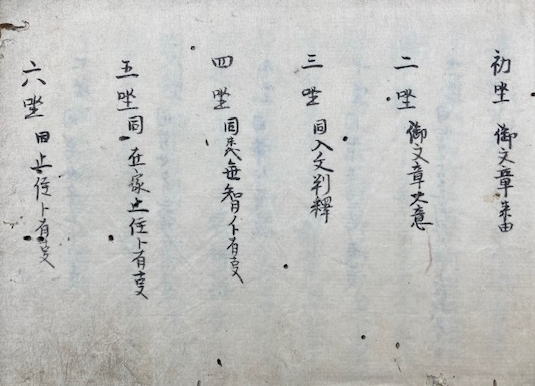 初坐 御文章来由
二坐 御文章大意
三坐 同入文判釋
四坐 同悉無智ト有亘
五坐 同在家止住ト有亘
六坐 同止住ト有亘